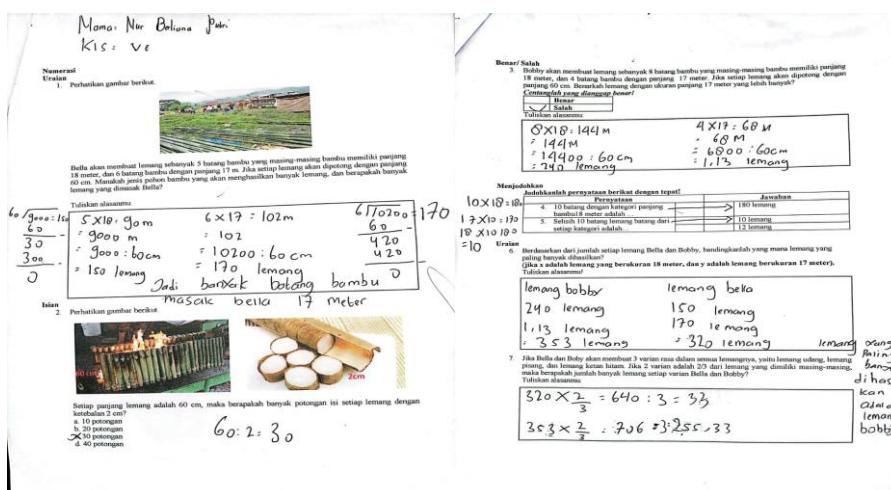 Nama: Nur Beliana Putri
Kls: Ve
Numerasi
Uraian
1. Perhatikan gambar berikut.
Bella akan membuat lemang sebanyak 5 batang bambu yang masing-masing bambu memiliki panjang
18 meter, dan 6 batang bambu dengan panjang 17 m. Jika setiap lemang akan dipotong dengan panjang
60 cm. Manakah jenis pohon bambu yang akan menghasilkan banyak lemang, dan berapakah banyak
lemang yang dimasak Bella?
Tuliskan alasanmu:
60/9000 = 150
60 -
30
300 -
0
5 X 18 = 90 m
= 9000 m
= 9000 : 60 cm
= 150 lemang
6 X 17 = 102 m
= 102
= 10200 : 60 cm
= 170 lemang
61/10200 = 170
60 -
420
420 -
0
Jadi banyak batang bambu
masak bella 17 meter
Isian
2. Perhatikan gambar berikut
60 cm
2cm
Setiap panjang lemang adalah 60 cm, maka berapakah banyak potongan isi setiap lemang dengan
ketebalan 2 cm?
a. 10 potongan
b. 20 potongan
c. 30 potongan
d. 40 potongan
60 : 2 = 30
Benar/ Salah
3. Bobby akan membuat lemang sebanyak 8 batang bambu yang masing-masing bambu memiliki panjang
18 meter, dan 4 batang bambu dengan panjang 17 meter. Jika setiap lemang akan dipotong dengan
panjang 60 cm. Benarkah lemang dengan ukuran panjang 17 meter yang lebih banyak?
Centanglah yang dianggap benar!
Benar
✓ Salah
Tuliskan alasanmu:
8 X 18 = 144 m
= 144 M
= 14400 : 60 cm
= 240 lemang
4 X 17 = 68 M
= 68 M
= 6800 : 60cm
= 1,13 lemang
Menjodohkan
Jodohkanlah pernyataan berikut dengan tepat!
Pernyataan Jawaban
4. 10 batang dengan kategori panjang
bambu18 meter adalah
180 lemang
5. Selisih 10 batang lemang batang dari
setiap kategori adalah
10 lemang
12 lemang
10 X 18 = 180
17 X 10 = 170
18 X 10 180
= 10
Uraian
6. Berdasarkan dari jumlah setiap lemang Bella dan Bobby, bandingkanlah yang mana lemang yang
paling banyak dihasilkan?
(jika x adalah lemang yang berukuran 18 meter, dan y adalah lemang berukuran 17 meter).
Tuliskan alasanmu!
lemang bobby
240 lemang
1,13 lemang
= 353 lemang
lemang bella
150 lemang
170 lemang
= 320 lemang
lemang yang
Palin
bany
dihas
kan
adala
leman
bobb
7. Jika Bella dan Boby akan membuat 3 varian rasa dalam semua lemangnya, yaitu lemang udang, lemang
pisang, dan lemang ketan hitam. Jika 2 varian adalah 2/3 dari lemang yang dimiliki masing-masing,
maka berapakah jumlah banyak lemang setiap varian Bella dan Bobby?
Tuliskan alasanmu:
320 X 2/3 = 640 : 3 = 33
353 X 2/3 = 706 : 3 = 255,33